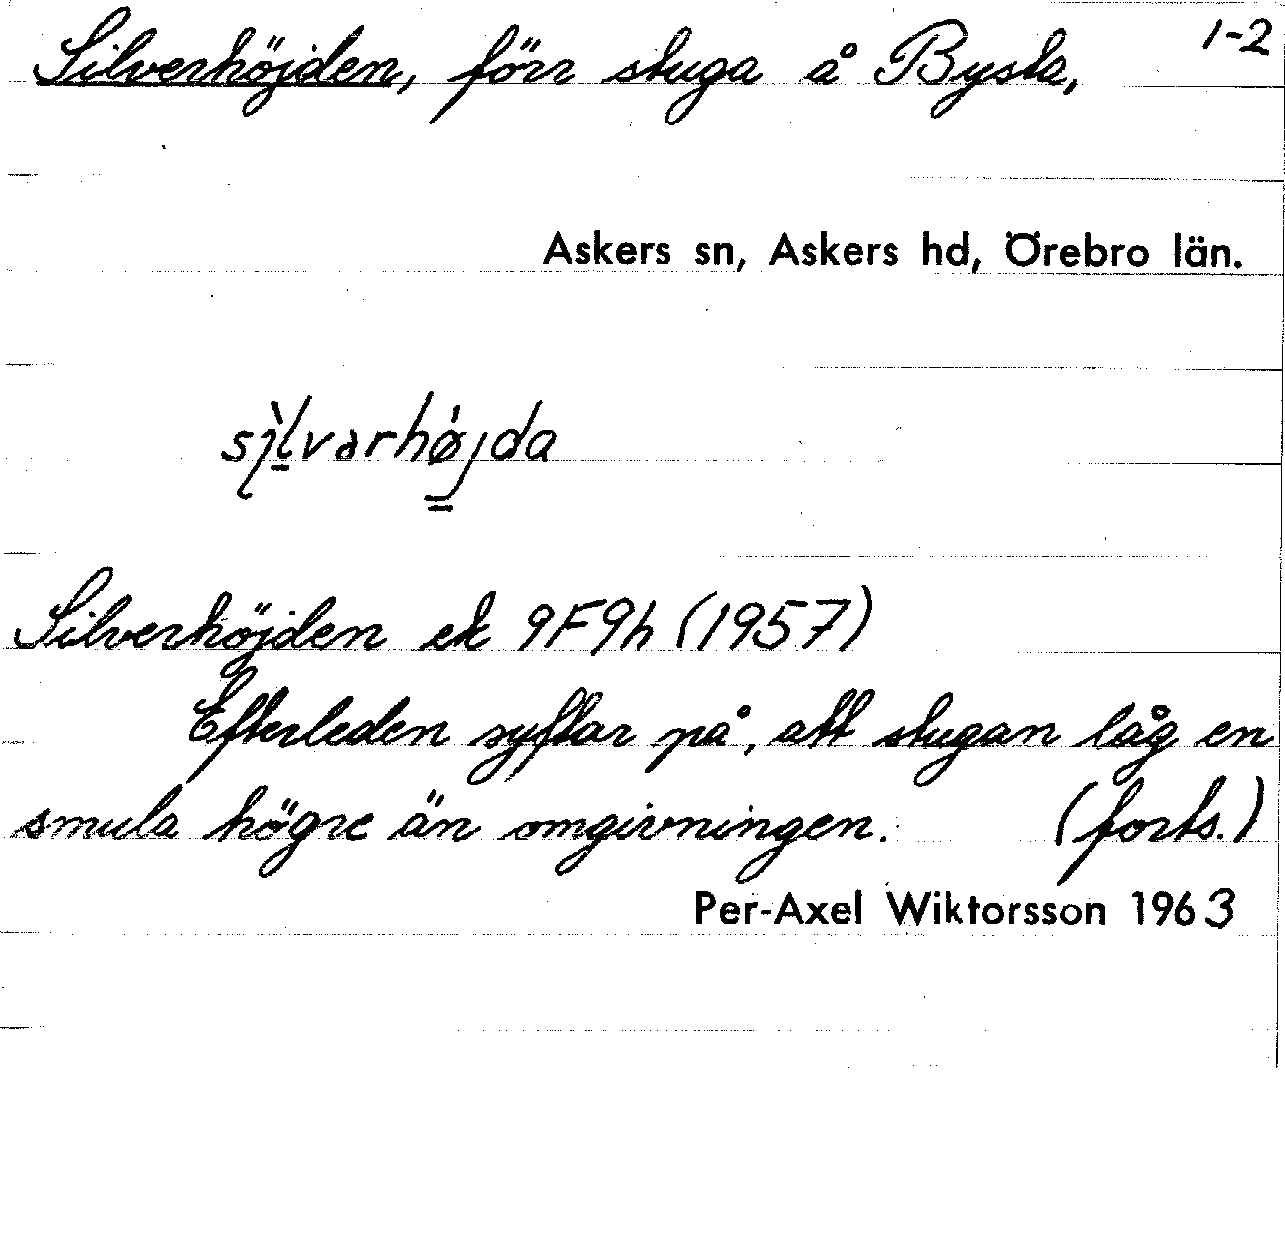 Silverhöjden, förr stuga å Bysta, 1-2
Askers sn, Askers hd, Örebro län.
Silverhöjden ek 9F9h (1957)
Efterleden syftar på, att stugan låg en
smula högre än omgivningen. (forts.)
Per-Axel Wiktorsson 1963